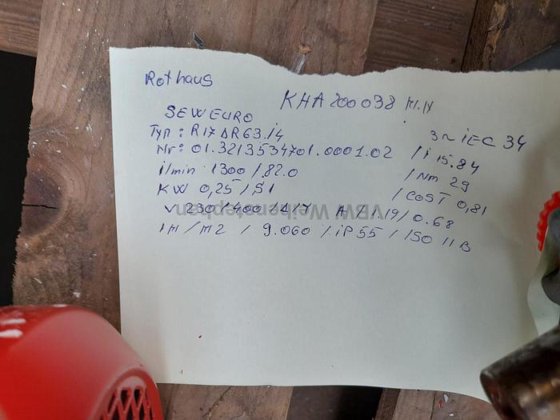 Rothaus
KHA200038 M.N
SEW EURO
Typ: R17 DR63.i4 3~ iEC 34
Nr: 01.3213534701.0001.02 / i 15.84
i/min 1300 / 82.0 / Nm 29
KW 0,25 / S1 / COST 0,81
V 230 / 400 A / 1.19 / 0.68
IM / M2 / 9.060 / iP 55 / ISO 11 B
VBW Weihenstephan